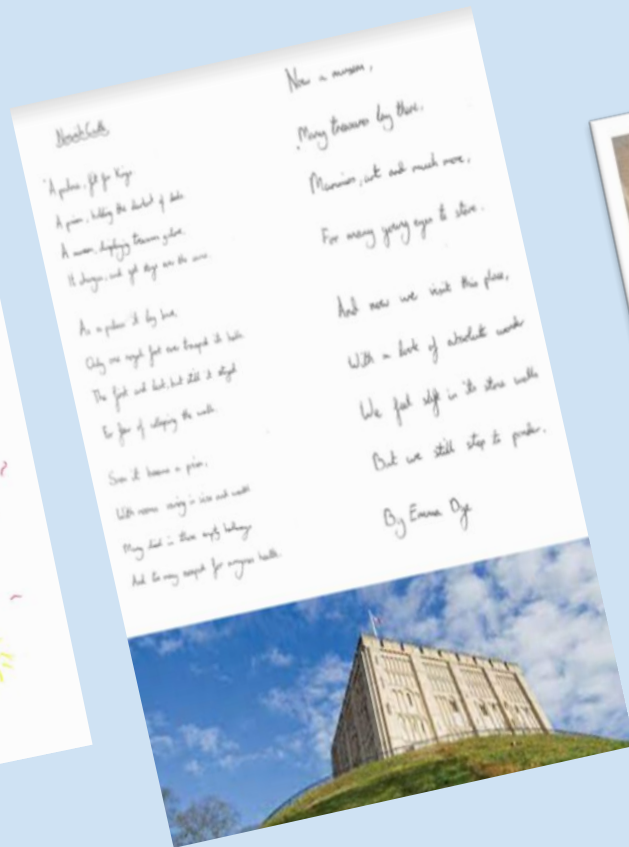 Norwich Castle
A palace, fit for Kings
A prison, holding the darkest of
A museum, displaying treasures galore.
It changes, and yet stays the same.
As a palace it lay bare,
Only one royal foot ever it halls
The first and last, but still it stayed
For fear of the walls.
Soon it became a prison,
With rooms varying in size and
Many died in these empty
And too many for
Now a museum,
Many treasures lay there.
Mummies, art and much more,
For many young eyes to stare.
And now we visit this place,
With a look of absolute wonder
We feel safe in its stone walls
But we still stop to ponder.
By Emma Dye